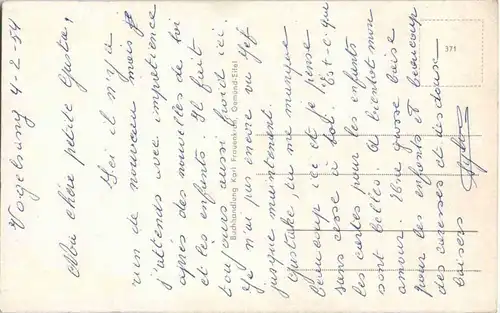 Vogelsang 4-2-54
Ma chère petite Gusta,
Ici il n'y a
rien de nouveau mais je
j'attends avec impatience
après des nouvelles de toi
et les enfants. Il fait
toujours aussi froid ici.
Je n'ai pas encore vu Jef
jusque maintenant.
Gustake, tu me manque
beaucoup ici et je pense
sans cesse à toi. Est-c-que
les cartes pour les enfants
sont belles. A bientôt mon
amour. Une grosse baise
pour les enfants et beaucoup
des caresses et des douse
baisers
Buchhandlung Karl Frauenkron, Gemünd-Eifel
371